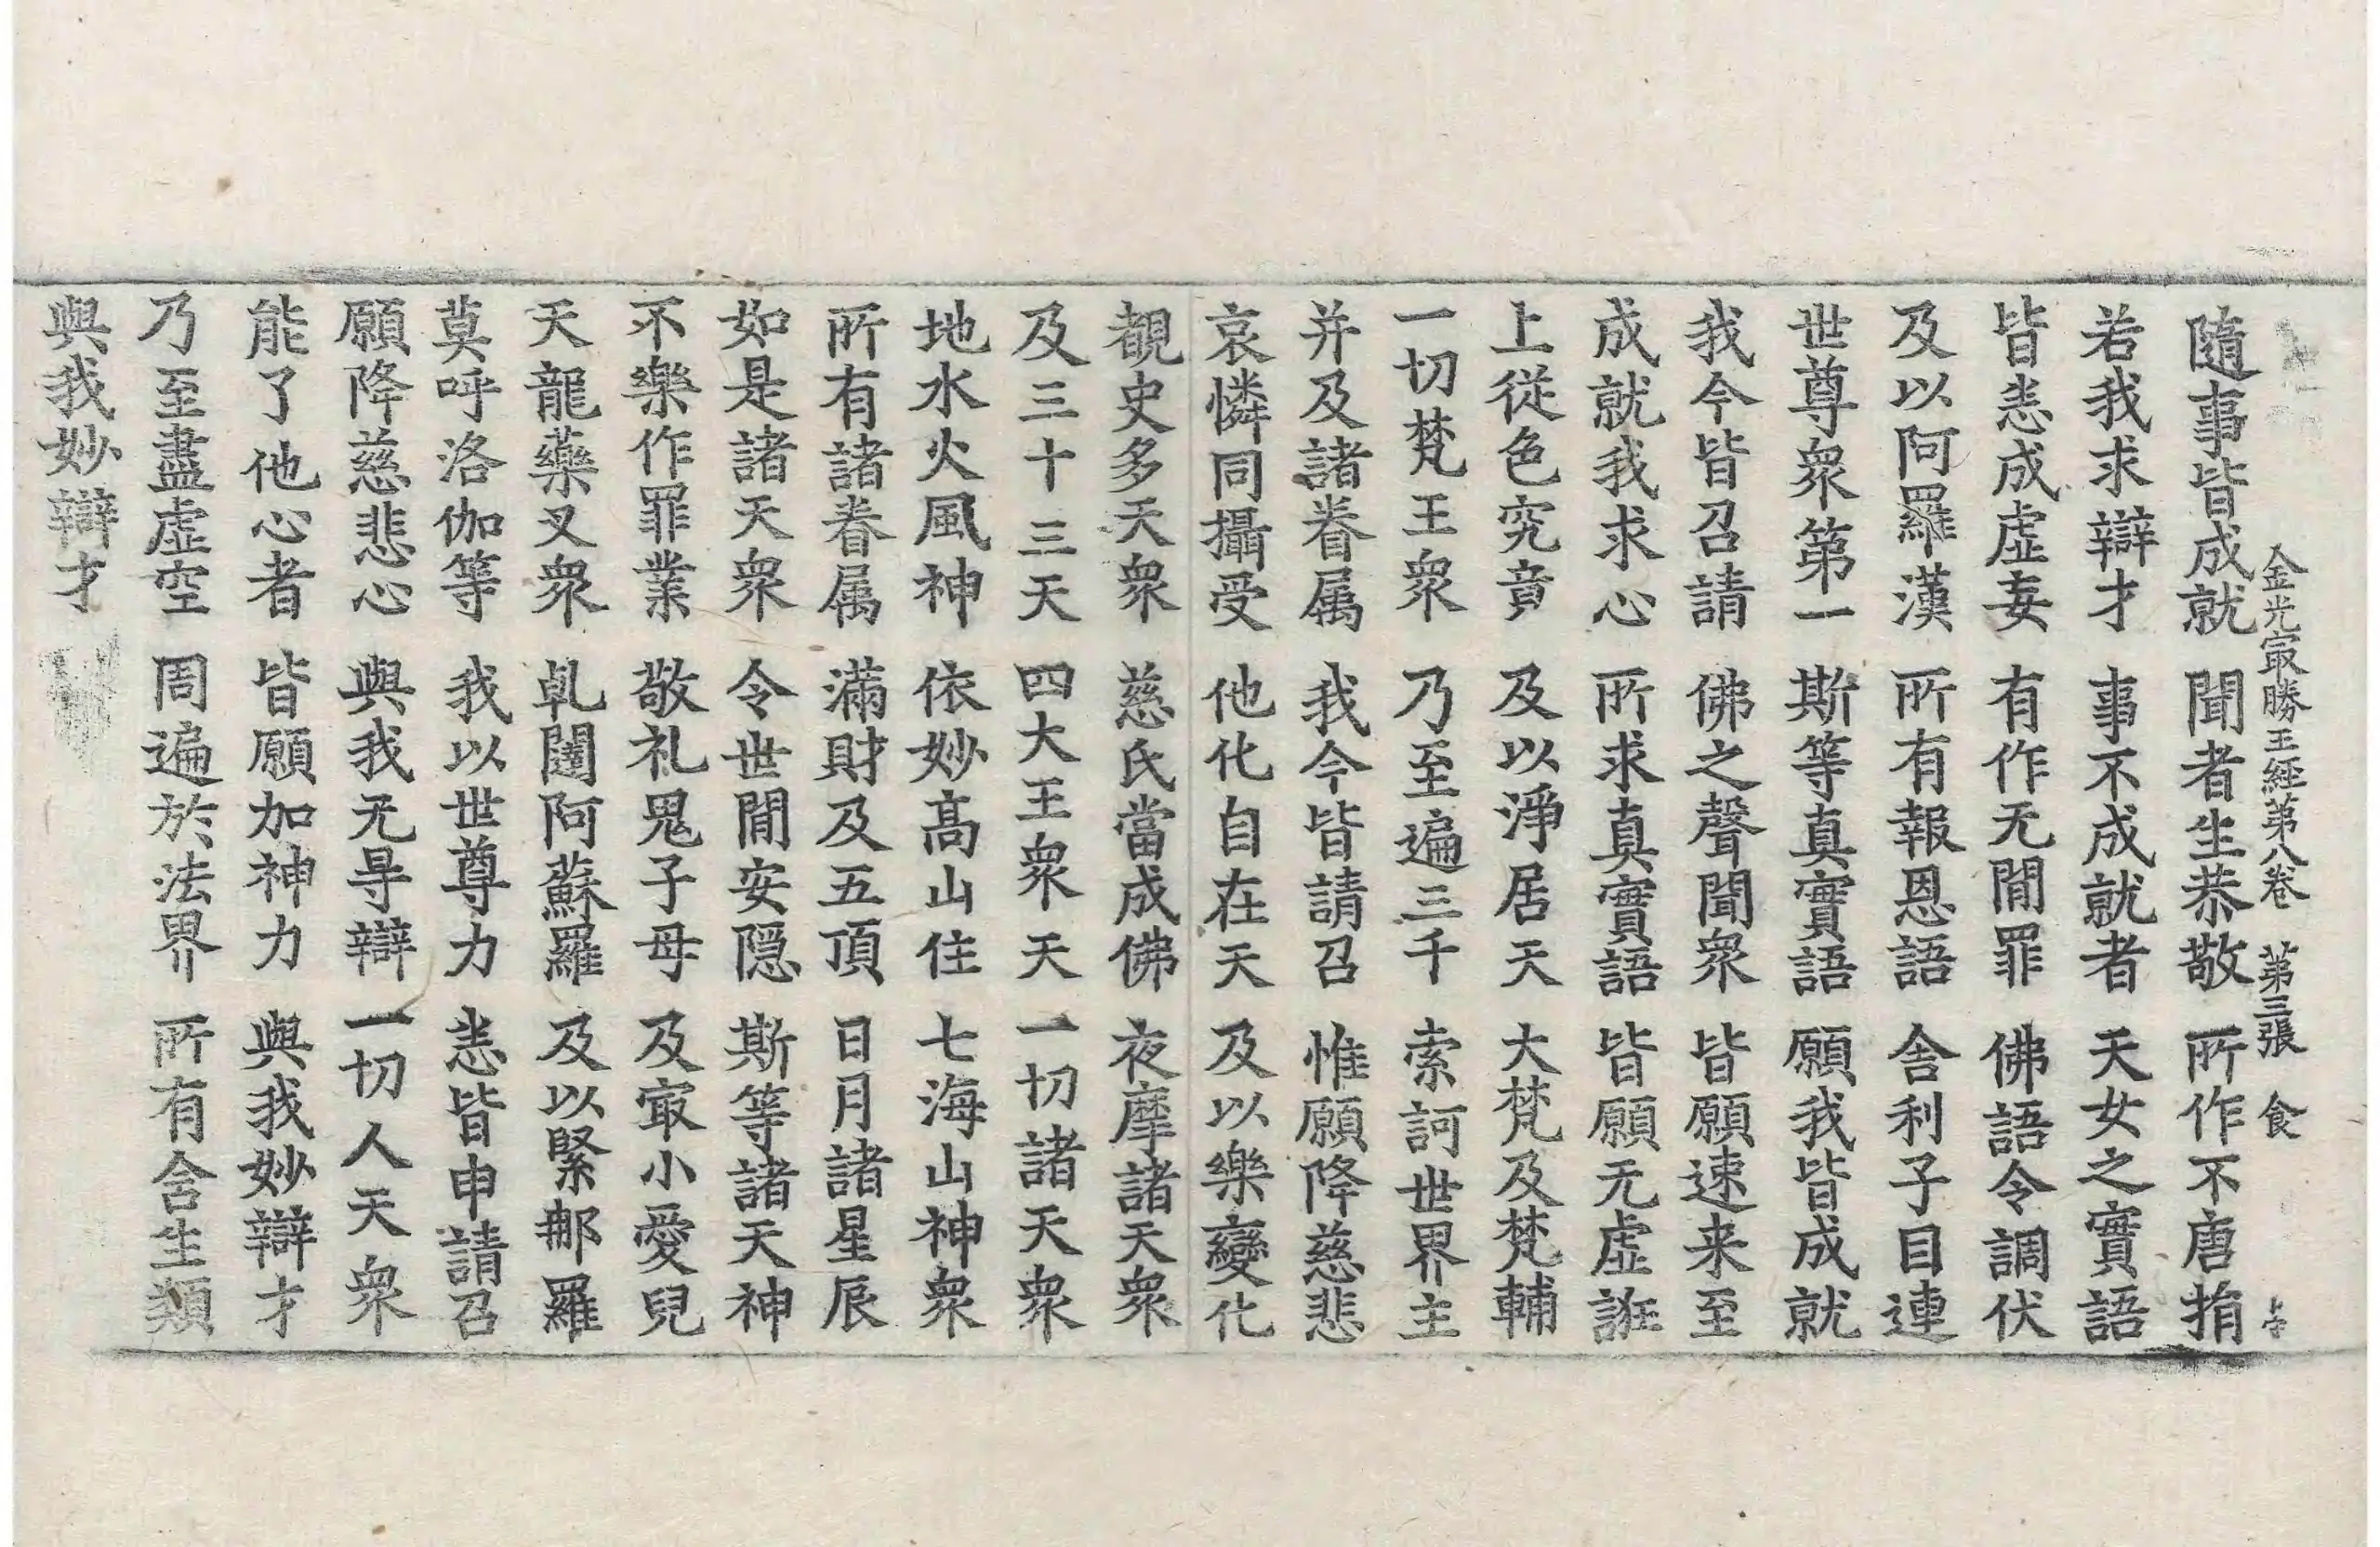 金光㝡勝王経第八卷 第三張 食
隨事皆成就 聞者生恭敬 所作不唐捐
若我求辯才 事不成就者 天女之實語
皆悉成虛妄 有作无閒罪 佛語令調伏
及以阿羅漢 所有報恩語 舍利子目連
世尊衆第一 斯等真實語 願我皆成就
我今皆召請 佛之聲聞衆 皆願速来至
成就我求心 所求真實語 皆願无虛誑
上從色究竟 及以淨居天 大梵及梵輔
一切梵王衆 乃至遍三千 索訶世界主
并及諸眷属 我今皆請召 惟願降慈悲
哀憐同攝受 他化自在天 及以樂變化
覩史多天衆 慈氏當成佛 夜摩諸天衆
及三十三天 四大王衆天 一切諸天衆
地水火風神 依妙高山住 七海山神衆
所有諸眷属 滿財及五頂 日月諸星辰
如是諸天衆 令世閒安隠 斯等諸天神
不樂作罪業 敬礼鬼子母 及㝡小愛兒
天龍藥叉衆 乹闥阿蘇羅 及以緊那羅
莫呼洛伽等 我以世尊力 悉皆申請召
願降慈悲心 與我无㝵辯 一切人天衆
能了他心者 皆願加神力 與我妙辯才
乃至盡虛空 周遍於法界 所有含生類
與我妙辯才